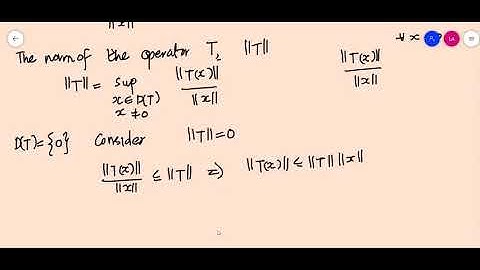 ||x||
∀ x
The norm of the operator T, ||T||
||T|| = sup ||T(x)|| / ||x||
x ∈ D(T)
x ≠ 0
||T(x)|| / ||x||
D(T) = {0} Consider ||T|| = 0
||T(x)|| / ||x|| ≤ ||T|| ⇒ ||T(x)|| ≤ ||T|| ||x||